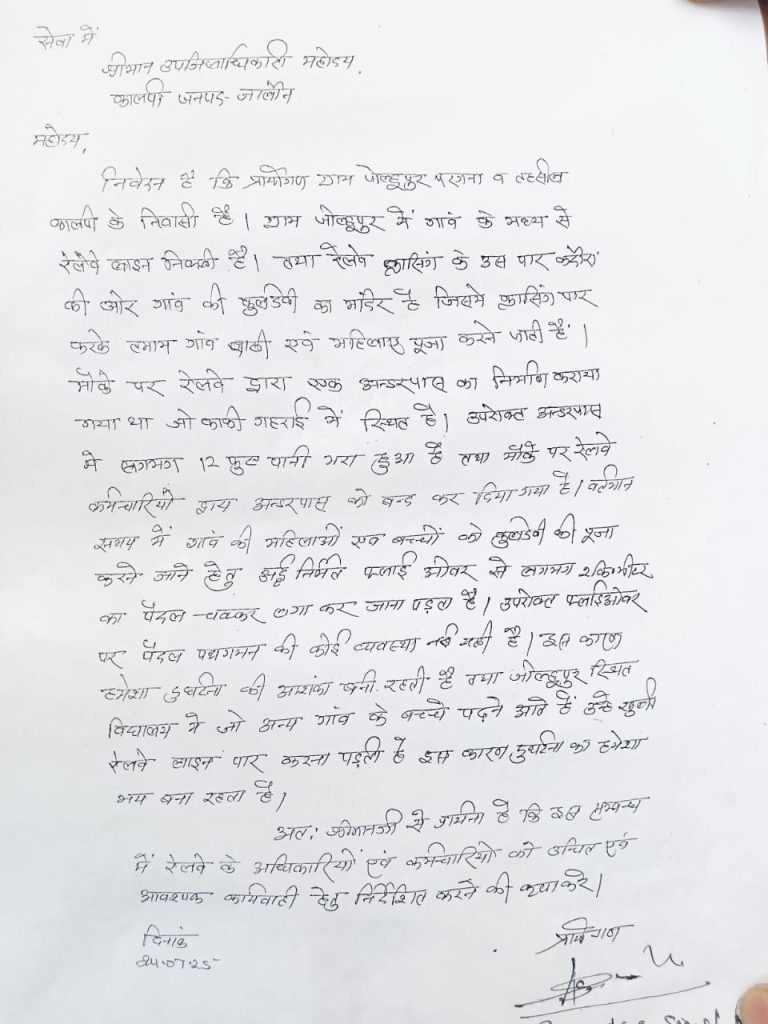 सेवा में
श्रीमान उपजिलाधिकारी महोदय,
कालपी जनपद- जालौन
महोदय,
निवेदन है कि प्रार्थीगण ग्राम जोल्हूपुर परगना व तहसील
कालपी के निवासी है। ग्राम जोल्हूपुर में गांव के मध्य से
रेलवे लाइन निकली है। तथा रेलवे क्रासिंग के उस पार कदौरा
की ओर गांव की कुलदेवी का मंदिर है जिसमे क्रासिंग पार
करके तमाम गांव वाली एवं महिलाएं पूजा करने जाती हैं।
मौके पर रेलवे द्वारा एक अन्डरपास का निर्माण कराया
गया था जो काफी गहराई में स्थित है। उपरोक्त अन्डरपास
मे लगभग 12 फुट पानी भरा हुआ है तथा मौके पर रेलवे
कर्मचारियों द्वारा अन्डरपास को बन्द कर दिया गया है। वर्तमान
समय में गांव की महिलाओं एवं बच्चों को कुलदेवी की पूजा
करने जाने हेतु निर्मित फ्लाई ओवर से लगभग 2 कि०मीटर
का पैदल चक्कर लगा कर जाना पड़ता है। उपरोक्त फ्लाईओवर
पर पैदल पथगमन की कोई व्यवस्था नही है। इस कारण
हमेशा दुर्घटना की आशंका बनी रहती है तथा जोल्हूपुर स्थित
विद्यालय मे जो अन्य गांव के बच्चे पढ़ने आते हैं उन्हे खुली
रेलवे लाइन पार करना पड़ती है इस कारण दुर्घटना का हमेशा
भय बना रहता है।
अतः श्रीमानजी से प्रार्थना है कि इस सम्बन्ध
में रेलवे के अधिकारियों एवं कर्मचारियों को उचित एवं
आवश्यक कार्यवाही हेतु निर्देशित करने की कृपा करें।
दिनांक
प्रार्थीगण
24.07.25